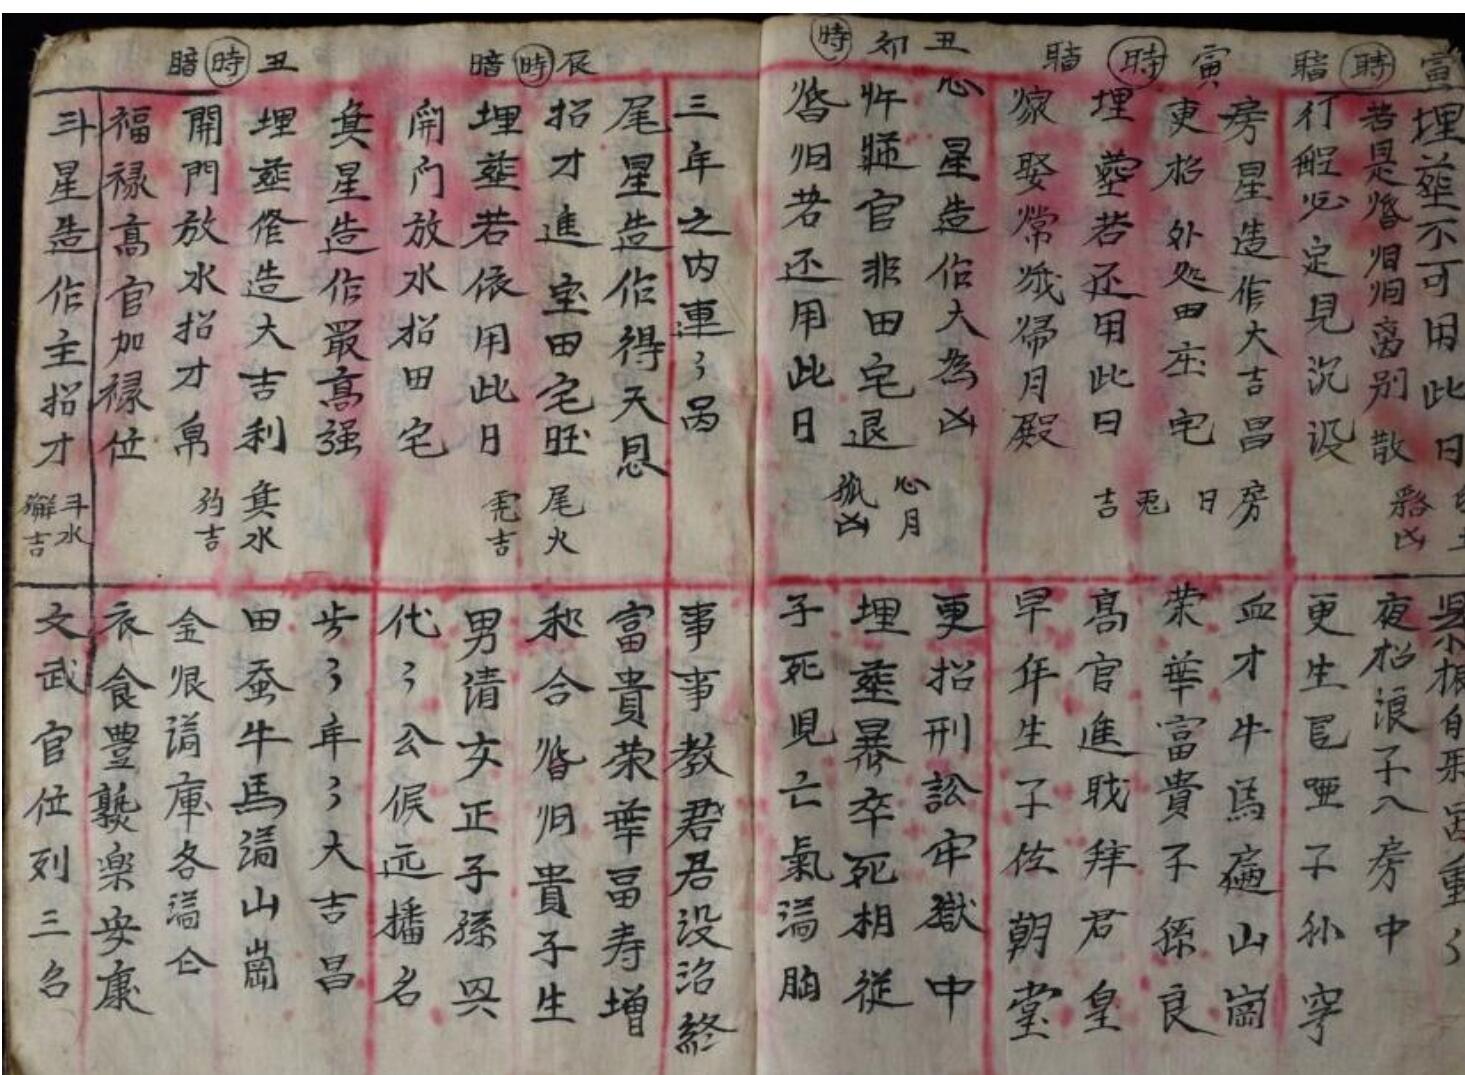 寅時暗
埋葬不可用此日
若是婚姻归离别散
夜招浪子入房中
行船必定見沉没
更生哑子孙穷
寅時暗
房星造作大吉昌
房日兎吉
血才牛馬遍山崗
更招外处田庄宅
荣華富貴子孫良
埋葬若还用此日
高官進职拜君皇
嫁娶常娥歸月殿
早年生子佐朝堂
丑卯時
心星造作大為凶
心月狐凶
更招刑訟牢獄中
忤逆官非田宅退
埋葬暴卒死相從
婚归若还用此日
子死児亡氣满胸
三年之内連々咼
事事教君君没治終
辰時暗
尾星造作得天恩
尾火虎吉
富貴荣華畐寿增
招才進宝田宅旺
和合婚归貴子生
埋葬若依用此日
男清女正子孫兴
開门放水招田宅
代々公侯远播名
丑時暗
箕星造作最高强
箕水豹吉
岁々年々大吉昌
埋葬修造大吉利
田蚕牛馬满山崗
開門放水招才帛
金银满庫谷满仓
福禄高官加禄位
衣食豊樂安康
斗星造作主招才
斗水獬吉
文武官位列三名